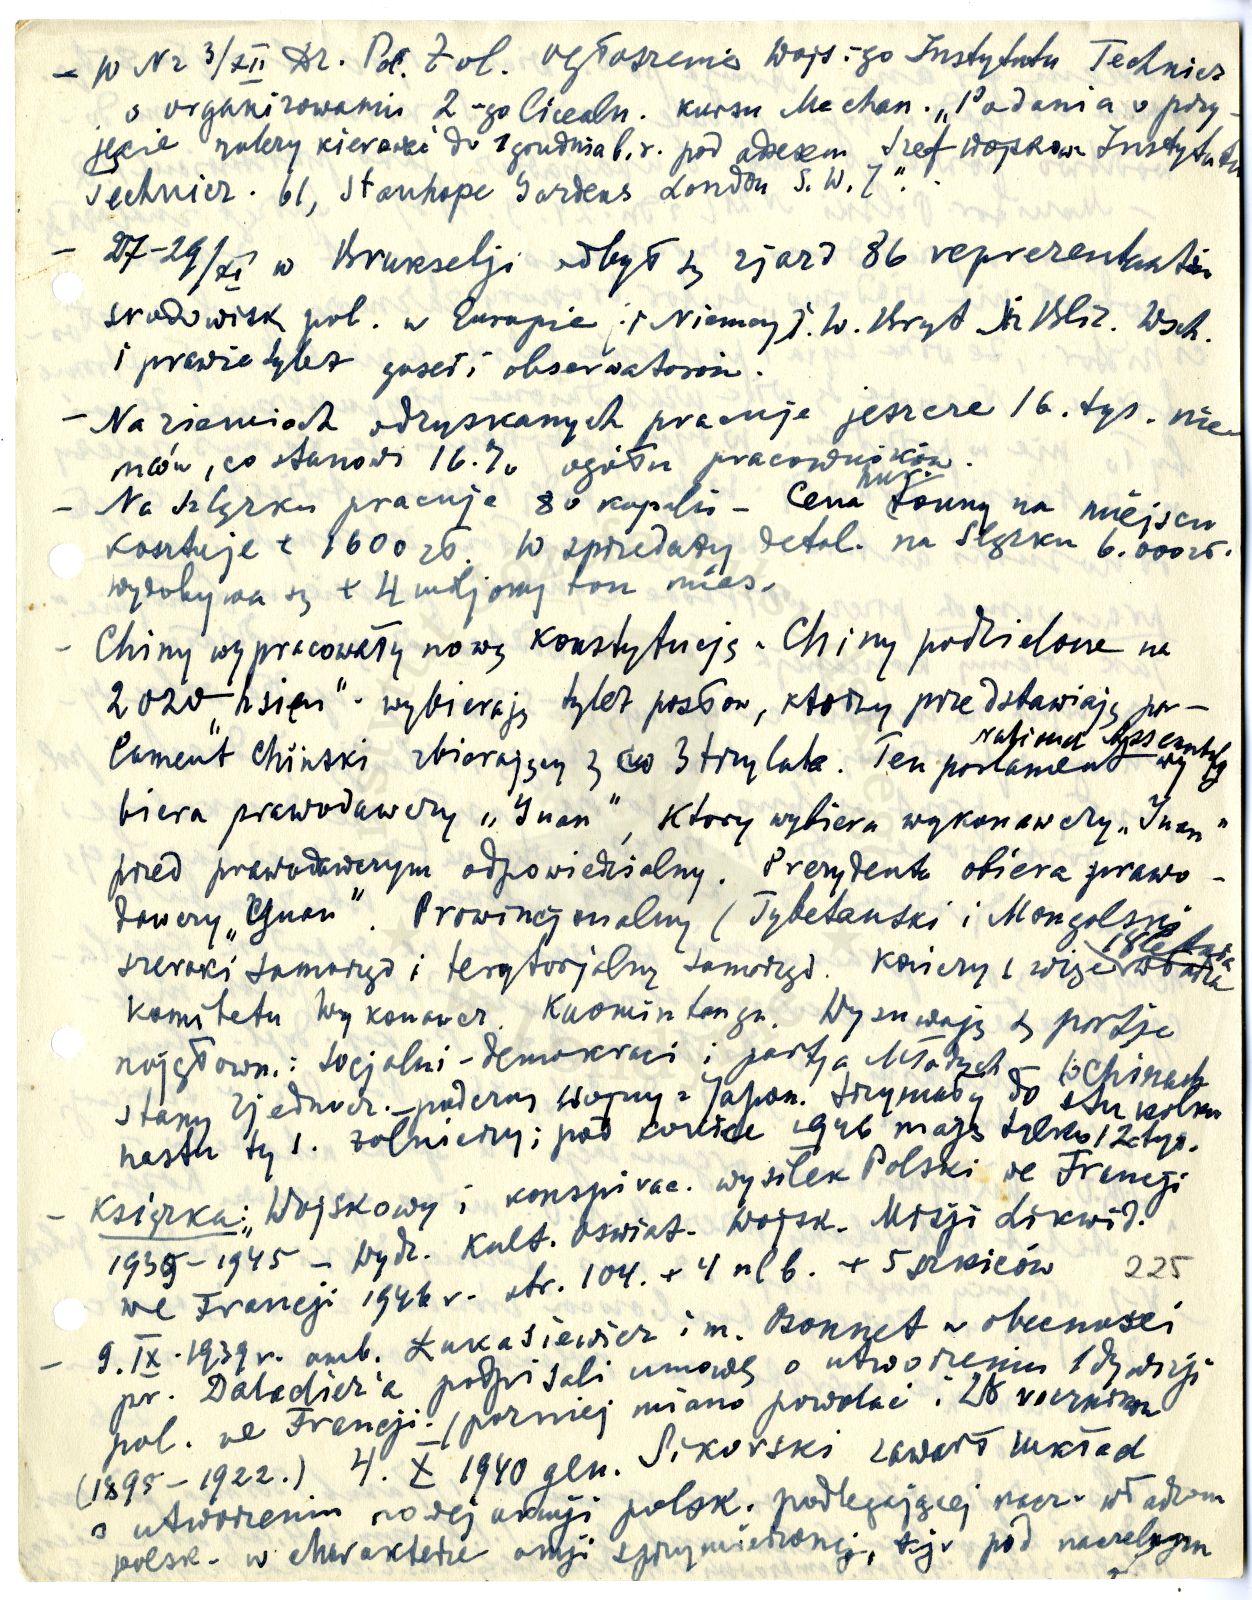 – W Nr 3/XII Dz. Pol. Żoł. ogłoszenie Wojs-go Instytutu Technicz
o organizowaniu 2-go licealn. kursu Mechan. „Podania o przy-
jęcie należy kierować do 1 grudnia b.r. pod adresem Szef Wojskow Instytutu
Technicz. 61, Stanhope Gardens London S.W.7".
– 27–29/XI w Brukselji odbył się zjazd 86 reprezentantów
środowisk pol. w Europie i Niemczj. W. Bryt Bliz. Wsch.
i prawie tyleż gości i obserwatorów.
– Na ziemiach odzyskanych pracuje jeszcze 16. tys. nie-
mców, co stanowi 16.% ogółu pracowników.
– Na Szląsku pracuje 80 kopalń – Cena tonny na miejscu
kosztuje ± 1600 zł. W sprzedaży detal. na Sląsku 6.000 zł.
wydobywa się ± 4 miljony ton mies.
– Chiny wypracowały nową Konstytucję. Chiny podzielone na
2020 „hsien" wybierają tyleż posłów, którzy przedstawiają par-
lament Chiński zbierający się co 3 trzy lata. Ten parlament national Assembly wy
biera prawodawczy „Juan", który wybiera wykonawczy „Juan"
przed prawodawczym odpowiedzialny. Prezydenta obiera prawo-
dawczy „Yuan". Prowincjonalny (Tybetański i Mongolski
szeroki samorząd i terytorjalny samorząd. Kończy się więc 18 letnia
Komitetu Wykonawcz. Kuomintangu. Wysuwają się partje
najgłown.: socjalni-demokraci i partja Młodych
Stany Zjednocz. – podczas Wojny z Japon. trzymały w Chinach do stu kilku
nastu tys. żołnierzy; pod koniec 1946 mają tylko 12 tys.
– Książka: „Wojskowy i konspirac. wysiłek Polski we Francji
1939–1945 – wydz. Kult. Oświat. Wojsk. Misji Likwid.
we Francji 1946 r. str. 104. + 4 nlb. + 5 szkiców
225
– 9.IX.1939 r. amb. Łukasiewicz i m. Bonnet w obecności
pr. Daladier'a podpisali umowę o utworzeniu 1 dywizji
pol. we Francji. (pozniej miano powołać i 28 roczników
(1895–1922.) 4. X 1940 gen. Sikorski zawarł układ
o utworzeniu nowej armji polsk. podlegającej nacz. władzom
polsk. w charakterze armji sprzymierzonej, tj. pod naczelnym